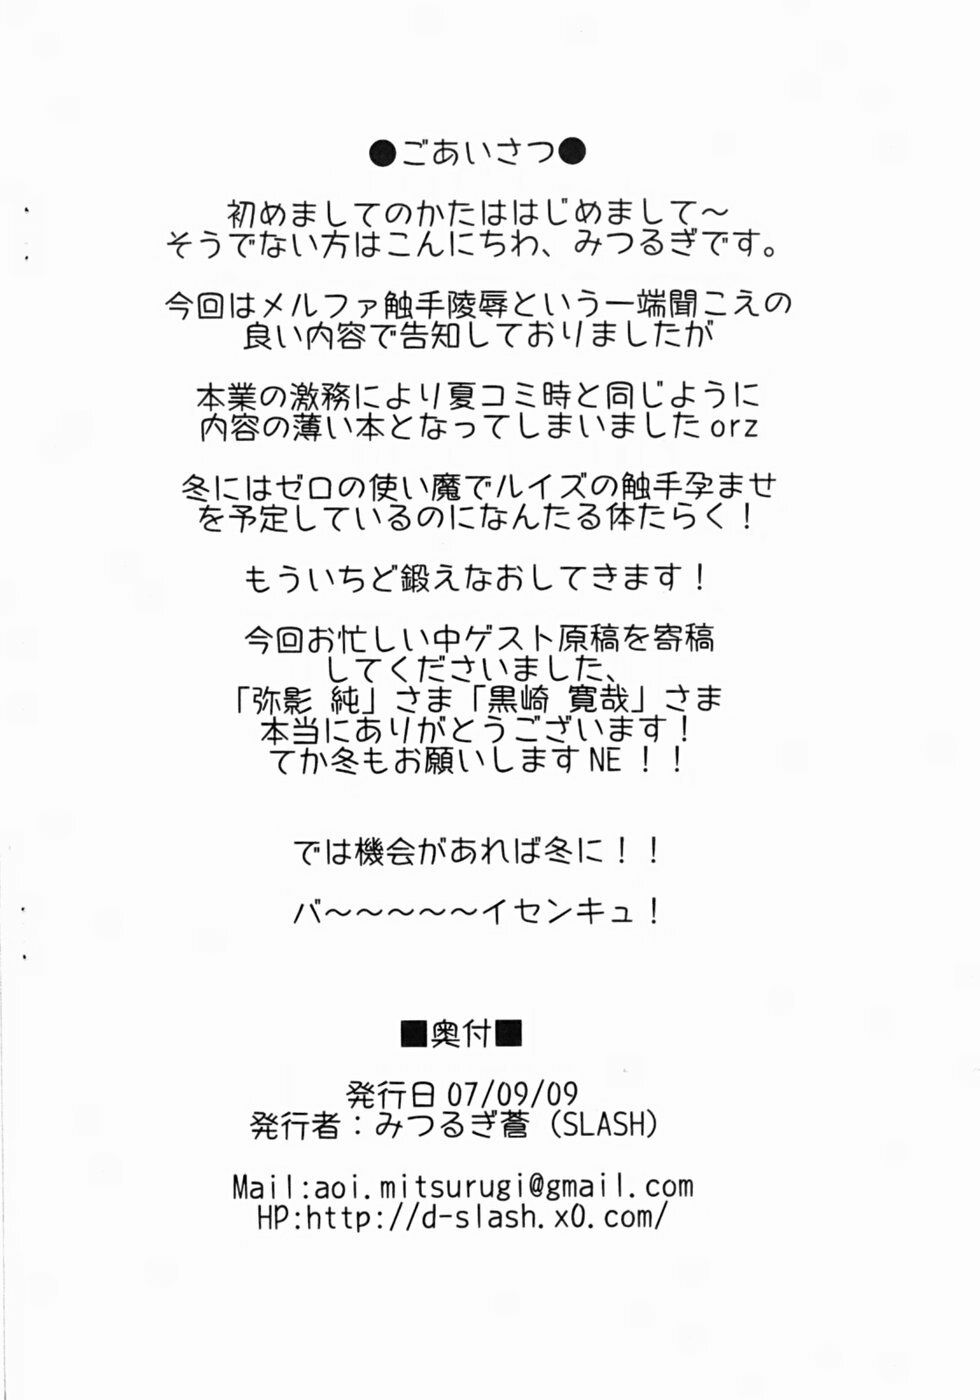 ●ごあいさつ●
初めましてのかたははじめまして～
そうでない方はこんにちわ、みつるぎです。
今回はメルファ触手陵辱という一端聞こえの
良い内容で告知しておりましたが
本業の激務により夏コミ時と同じように
内容の薄い本となってしまいましたorz
冬にはゼロの使い魔でルイズの触手孕ませ
を予定しているのになんたる体たらく！
もういちど鍛えなおしてきます！
今回お忙しい中ゲスト原稿を寄稿
してくださいました、
「弥影 純」さま「黒崎 寛哉」さま
本当にありがとうございます！
てか冬もお願いしますNE！！
では機会があれば冬に！！
バ～～～～～イセンキュ！
■奥付■
発行日 07/09/09
発行者：みつるぎ蒼（SLASH）
Mail:aoi.mitsurugi@gmail.com
HP:http://d-slash.x0.com/